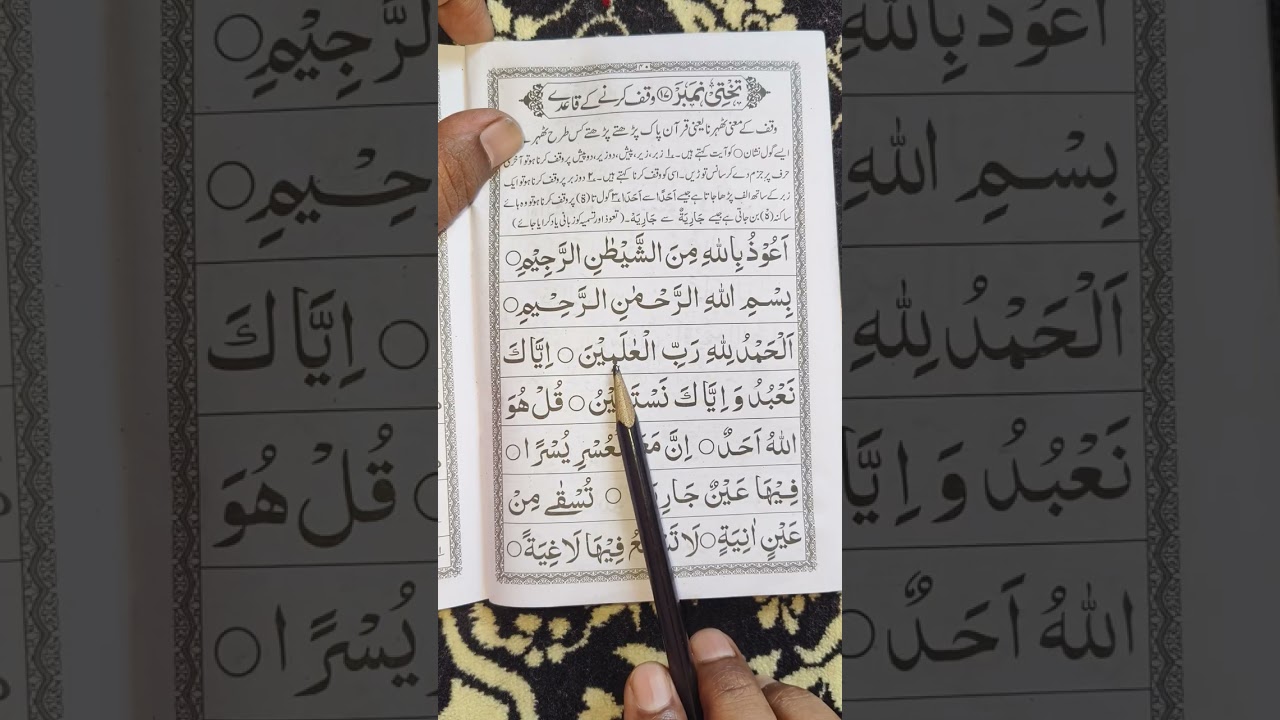 ۴۰
تختی نمبر ۱۷ وقف کرنے کے قاعدے
وقف کے معنی ٹھہرنا یعنی قرآن پاک پڑھتے پڑھتے کس طرح ٹھہرے
ایسے گول نشان ○ کو آیت کہتے ہیں۔ ۱۔ زبر، زیر، پیش، دو زیر، دو پیش پر وقف کرنا ہو تو آخری
حرف پر جزم دے کر سانس توڑیں۔ اسی کو وقف کرنا کہتے ہیں۔ ۲۔ دو زبر پر وقف کرنا ہو تو ایک
زبر کے ساتھ الف پڑھا جاتا ہے جیسے اَحَدًا سے اَحَدَا ۳۔ گول تا (ۃ) پر وقف کرنا ہو تو وہ ہائے
ساکنہ (ہْ) بن جاتی ہے جیسے جَارِیَةٌ سے جَارِیَهْ۔ (تعوذ اور تسمیہ کو زبانی یاد کرایا جائے)
اَعُوْذُ بِاللّٰهِ مِنَ الشَّيْطٰنِ الرَّجِيْمِ ○
بِسْمِ اللّٰهِ الرَّحْمٰنِ الرَّحِيْمِ ○
اَلْحَمْدُ لِلّٰهِ رَبِّ الْعٰلَمِيْنَ ○ اِيَّاكَ
نَعْبُدُ وَ اِيَّاكَ نَسْتَعِيْنُ ○ قُلْ هُوَ
اللّٰهُ اَحَدٌ ○ اِنَّ مَعَ الْعُسْرِ يُسْرًا ○
فِيْهَا عَيْنٌ جَارِيَةٌ ○ تُسْقٰى مِنْ
عَيْنٍ اٰنِيَةٍ ○ لَا تَسْمَعُ فِيْهَا لَاغِيَةً ○